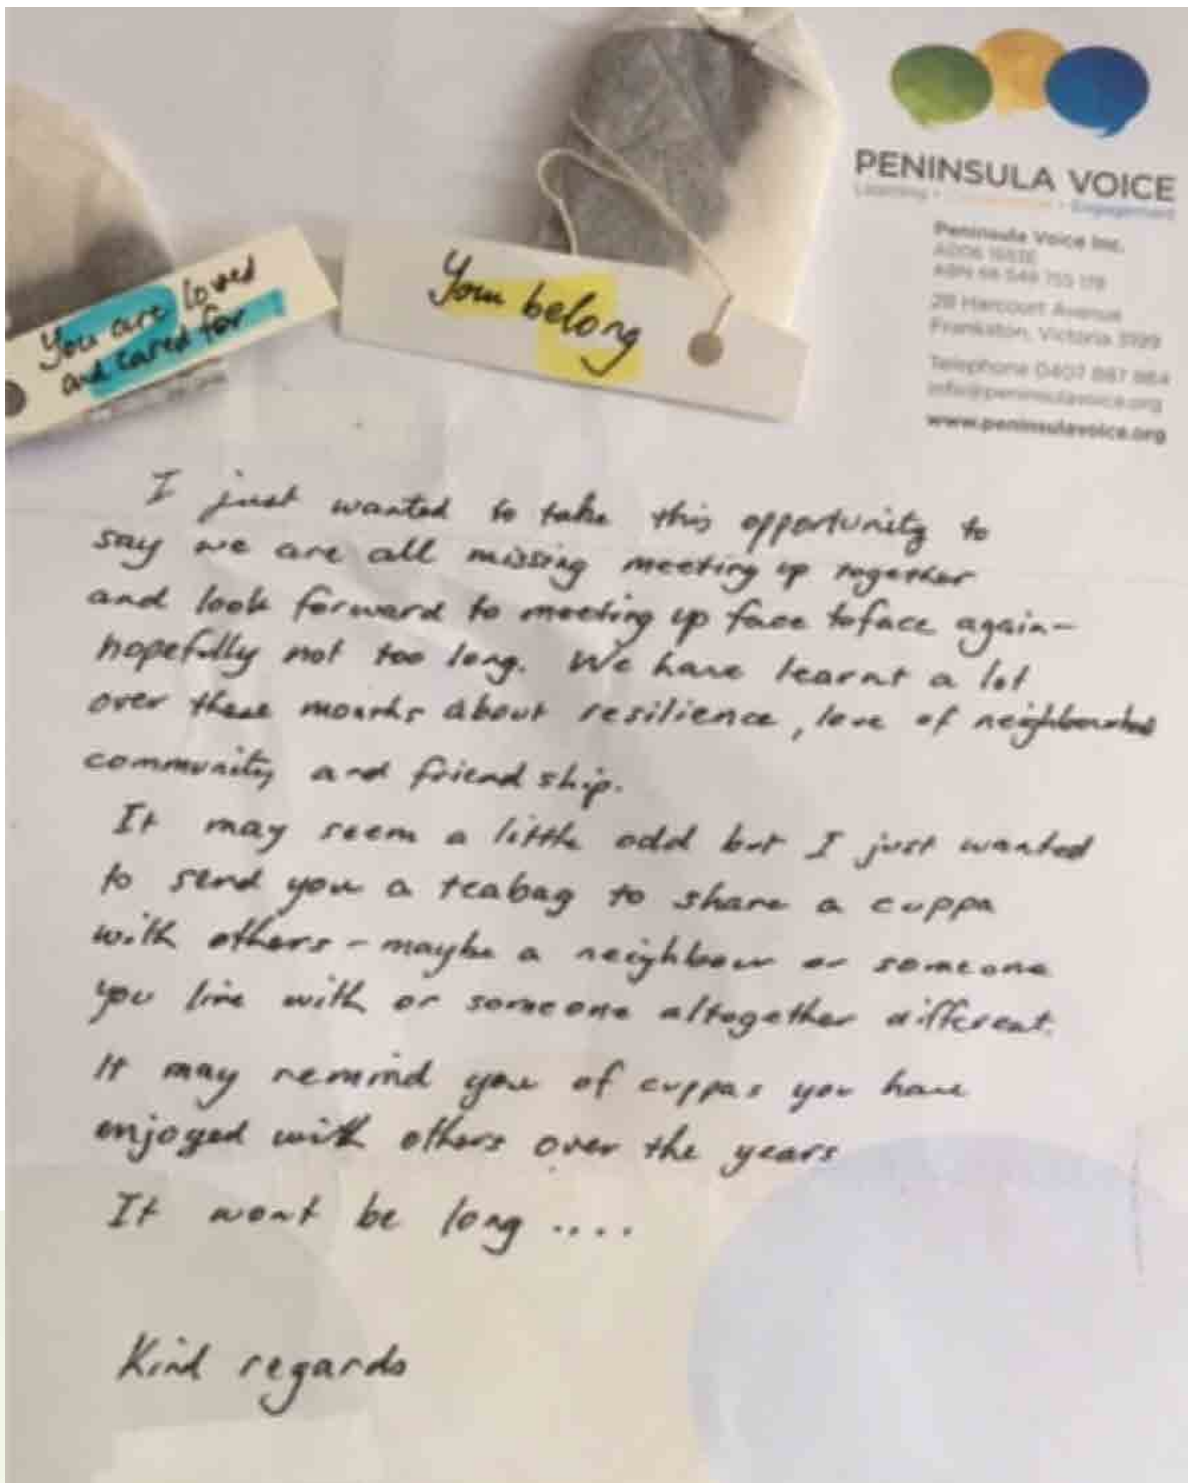 PENINSULA VOICE
Learning • • Engagement
Peninsula Voice Inc.
28 Harcourt Avenue
Frankston, Victoria 3199
Telephone 0407 887 864
info@peninsulavoice.org
www.peninsulavoice.org
You are loved
and cared for
You belong
I just wanted to take this opportunity to
say we are all missing meeting up together
and look forward to meeting up face toface again-
hopefully not too long. We have learnt a lot
over these months about resilience, love of
community and friend ship.
It may seem a little odd but I just wanted
to send you a teabag to share a cuppa
with others - maybe a neighbour or someone
you live with or someone altogether different.
It may remind you of cuppas you have
enjoyed with others over the years
It wont be long ....
Kind regards